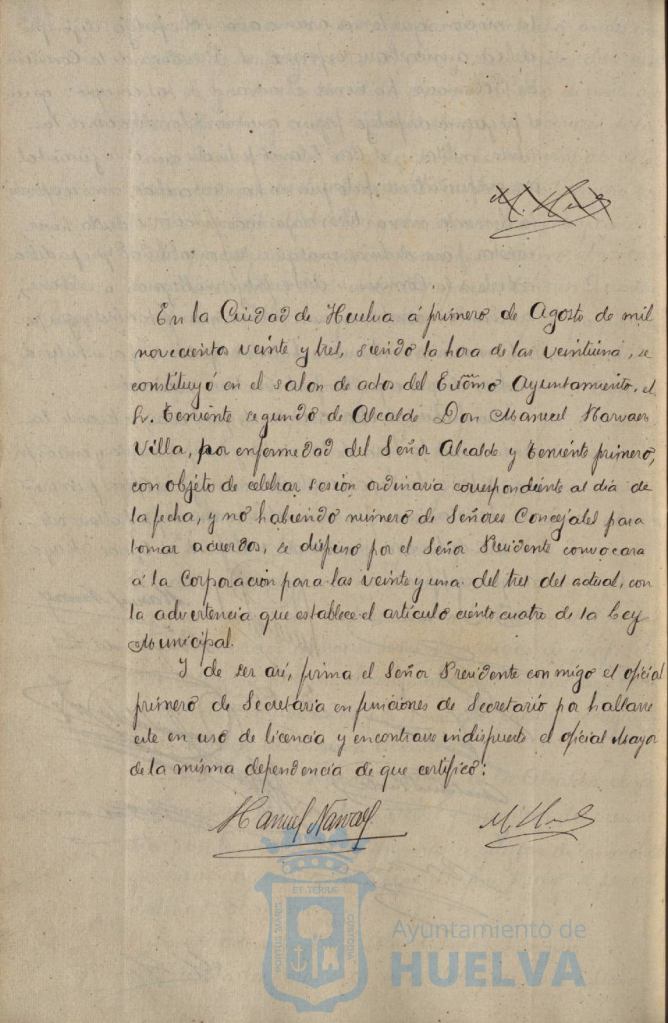 En la Ciudad de Huelva á primero de Agosto de mil
novecientos veinte y tres, siendo la hora de las veintiuna, se
constituyó en el salon de actos del Excmo Ayuntamiento, el
Sr. Teniente segundo de Alcalde Don Manuel Narvaez
Villa, por enfermedad del Señor Alcalde y Teniente primero,
con objeto de celebrar sesión ordinaria correspondiente al dia de
la fecha, y no habiendo número de Señores Concejales para
tomar acuerdos, se dispuso por el Señor Presidente convocara
á la Corporación para las veinte y una del tres del actual, con
la advertencia que establece el artículo ciento cuatro de la Ley
Municipal.
Y de ser asi, firma el Señor Presidente conmigo el oficial
primero de Secretaria en funciones de Secretario por hallarse
este en uso de licencia y encontrarse indispuesto el oficial Mayor
de la misma dependencia de que certifico:
Manuel Narvaez
PORTUS MARIS
ET TERRE
CUSTODIA
Ayuntamiento de
HUELVA